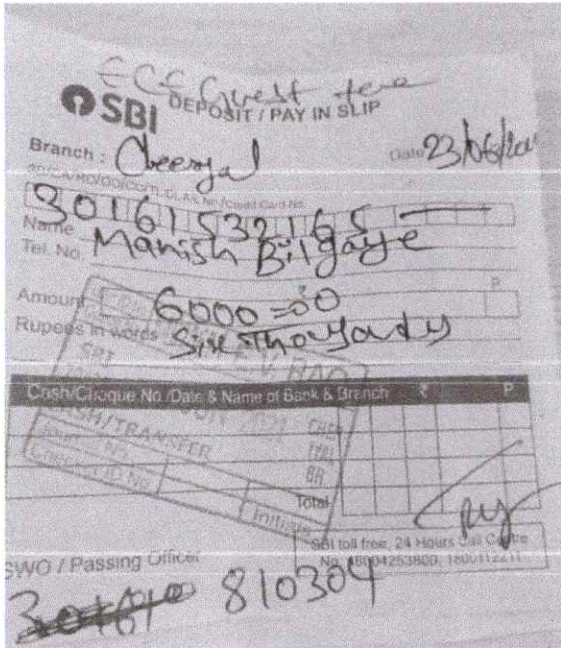 ECS Guest
SBI DEPOSIT / PAY IN SLIP
Branch : Cheeryal Date 23/06/20
30161532165
Name Manish Bilgaye
Tel. No.
Amount 6000=00 P.
Rupees in words Six Thousands
SBI
Cash/Cheque No./Date & Name of Bank & Branch ₹ P.
CASH/TRANSFER
Total
Initials
SBI toll free, 24 Hours Call Centre
No. 18004253800, 1800112211
SWO / Passing Officer
810304